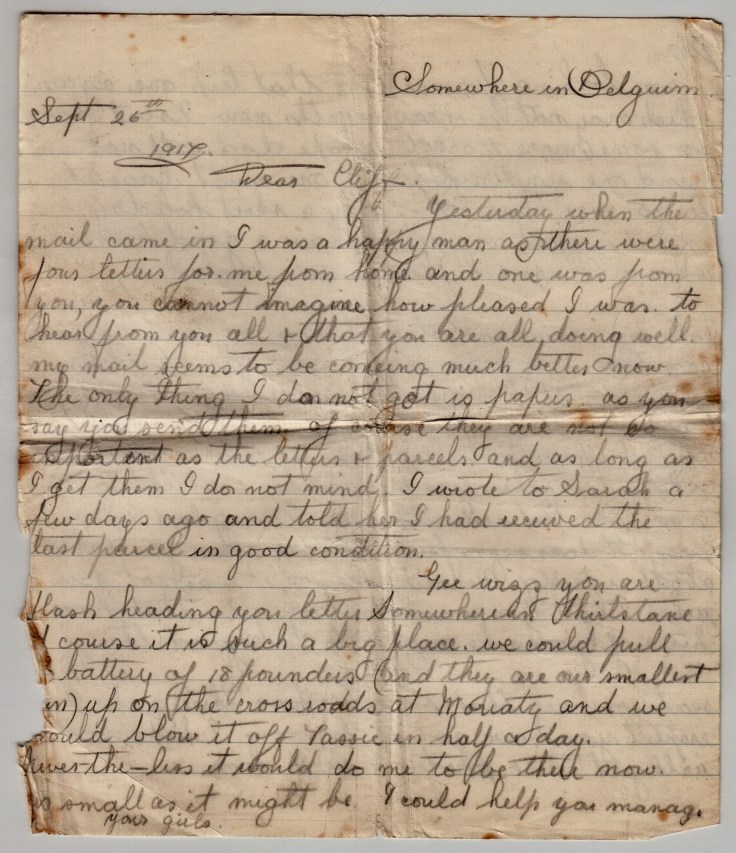 Somewhere in Belguim
Sept 26th
1917.
Dear Cliff.
Yesterday when the
mail came in I was a happy man as there were
four letters for me from home. and one was from
you, you cannot imagine how pleased I was. to
hear from you all + that you are all doing well.
my mail seems to be comeing much better now
The only thing I do not get is papers. as you
say you send them. of course they are not so
as the letters + parcels and as long as
I get them I do not mind. I wrote to Sarah a
few days ago and told her I had received the
last parcel in good condition.
Gee wizz you are
flash heading you letter Somewhere in Thirlstane
course it is such a big place. we could pull
battery of 18 pounders (and they are our smallest
) up on the cross rodds at Moriaty and we
would blow it off Tassie in half a day.
-the-less it would do me to be there now.
as small as it might be. I could help you manag.
your girls.